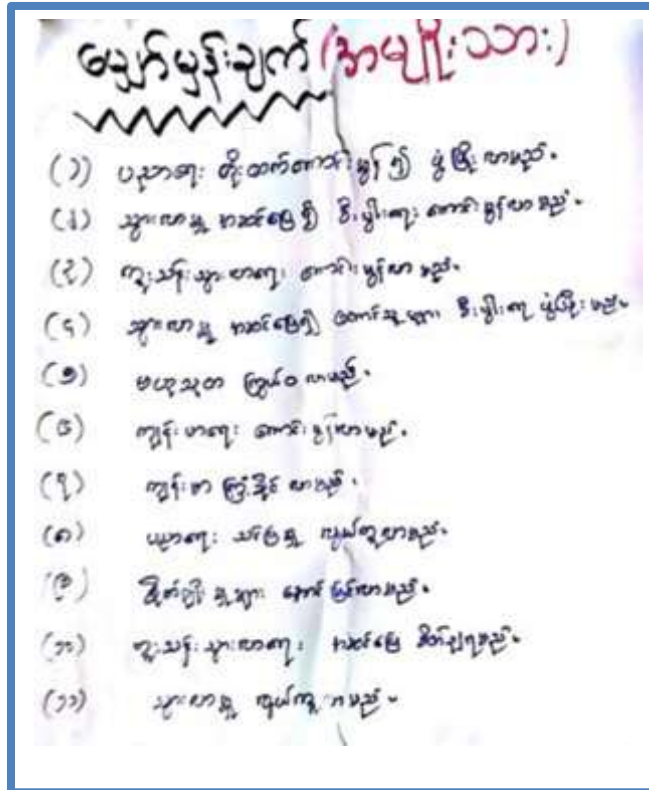 မျှော်မှန်းချက် (အမျိုးသား)
(၁) ပညာရေး တိုးတက်ကောင်းမွန်၍ ဖွံ့ဖြိုးလာမည်။
(၂) သွားလာမှု အဆင်ပြေ၍ စီးပွါးရေး ကောင်းမွန်လာမည်။
(၃) ကူးသန်းသွားလာရေး ကောင်းမွန်လာမည်။
(၄) သွားလာမှု အဆင်ပြေ၍ တောင်သူများ စီးပွါးရေ ဖွံ့ဖြိုးမည်။
(၅) ဗဟုသုတ ကြွယ်ဝလာမည်။
(၆) ကျန်းမာရေး ကောင်းမွန်လာမည်။
(၇) ကျန်းမာ ကြံ့ခိုင်လာမည်။
(၈) ပညာရေး သင်ပြမှု လွယ်ကူလာမည်။
(၉) စိုက်ပျိုးမှုများ အောင်မြင်လာမည်။
(၁၀) ကူးသန်းသွားလာရေး အဆင်ပြေ စိတ်ချရမည်။
(၁၁) သွားလာမှု လွယ်ကူလာမည်။